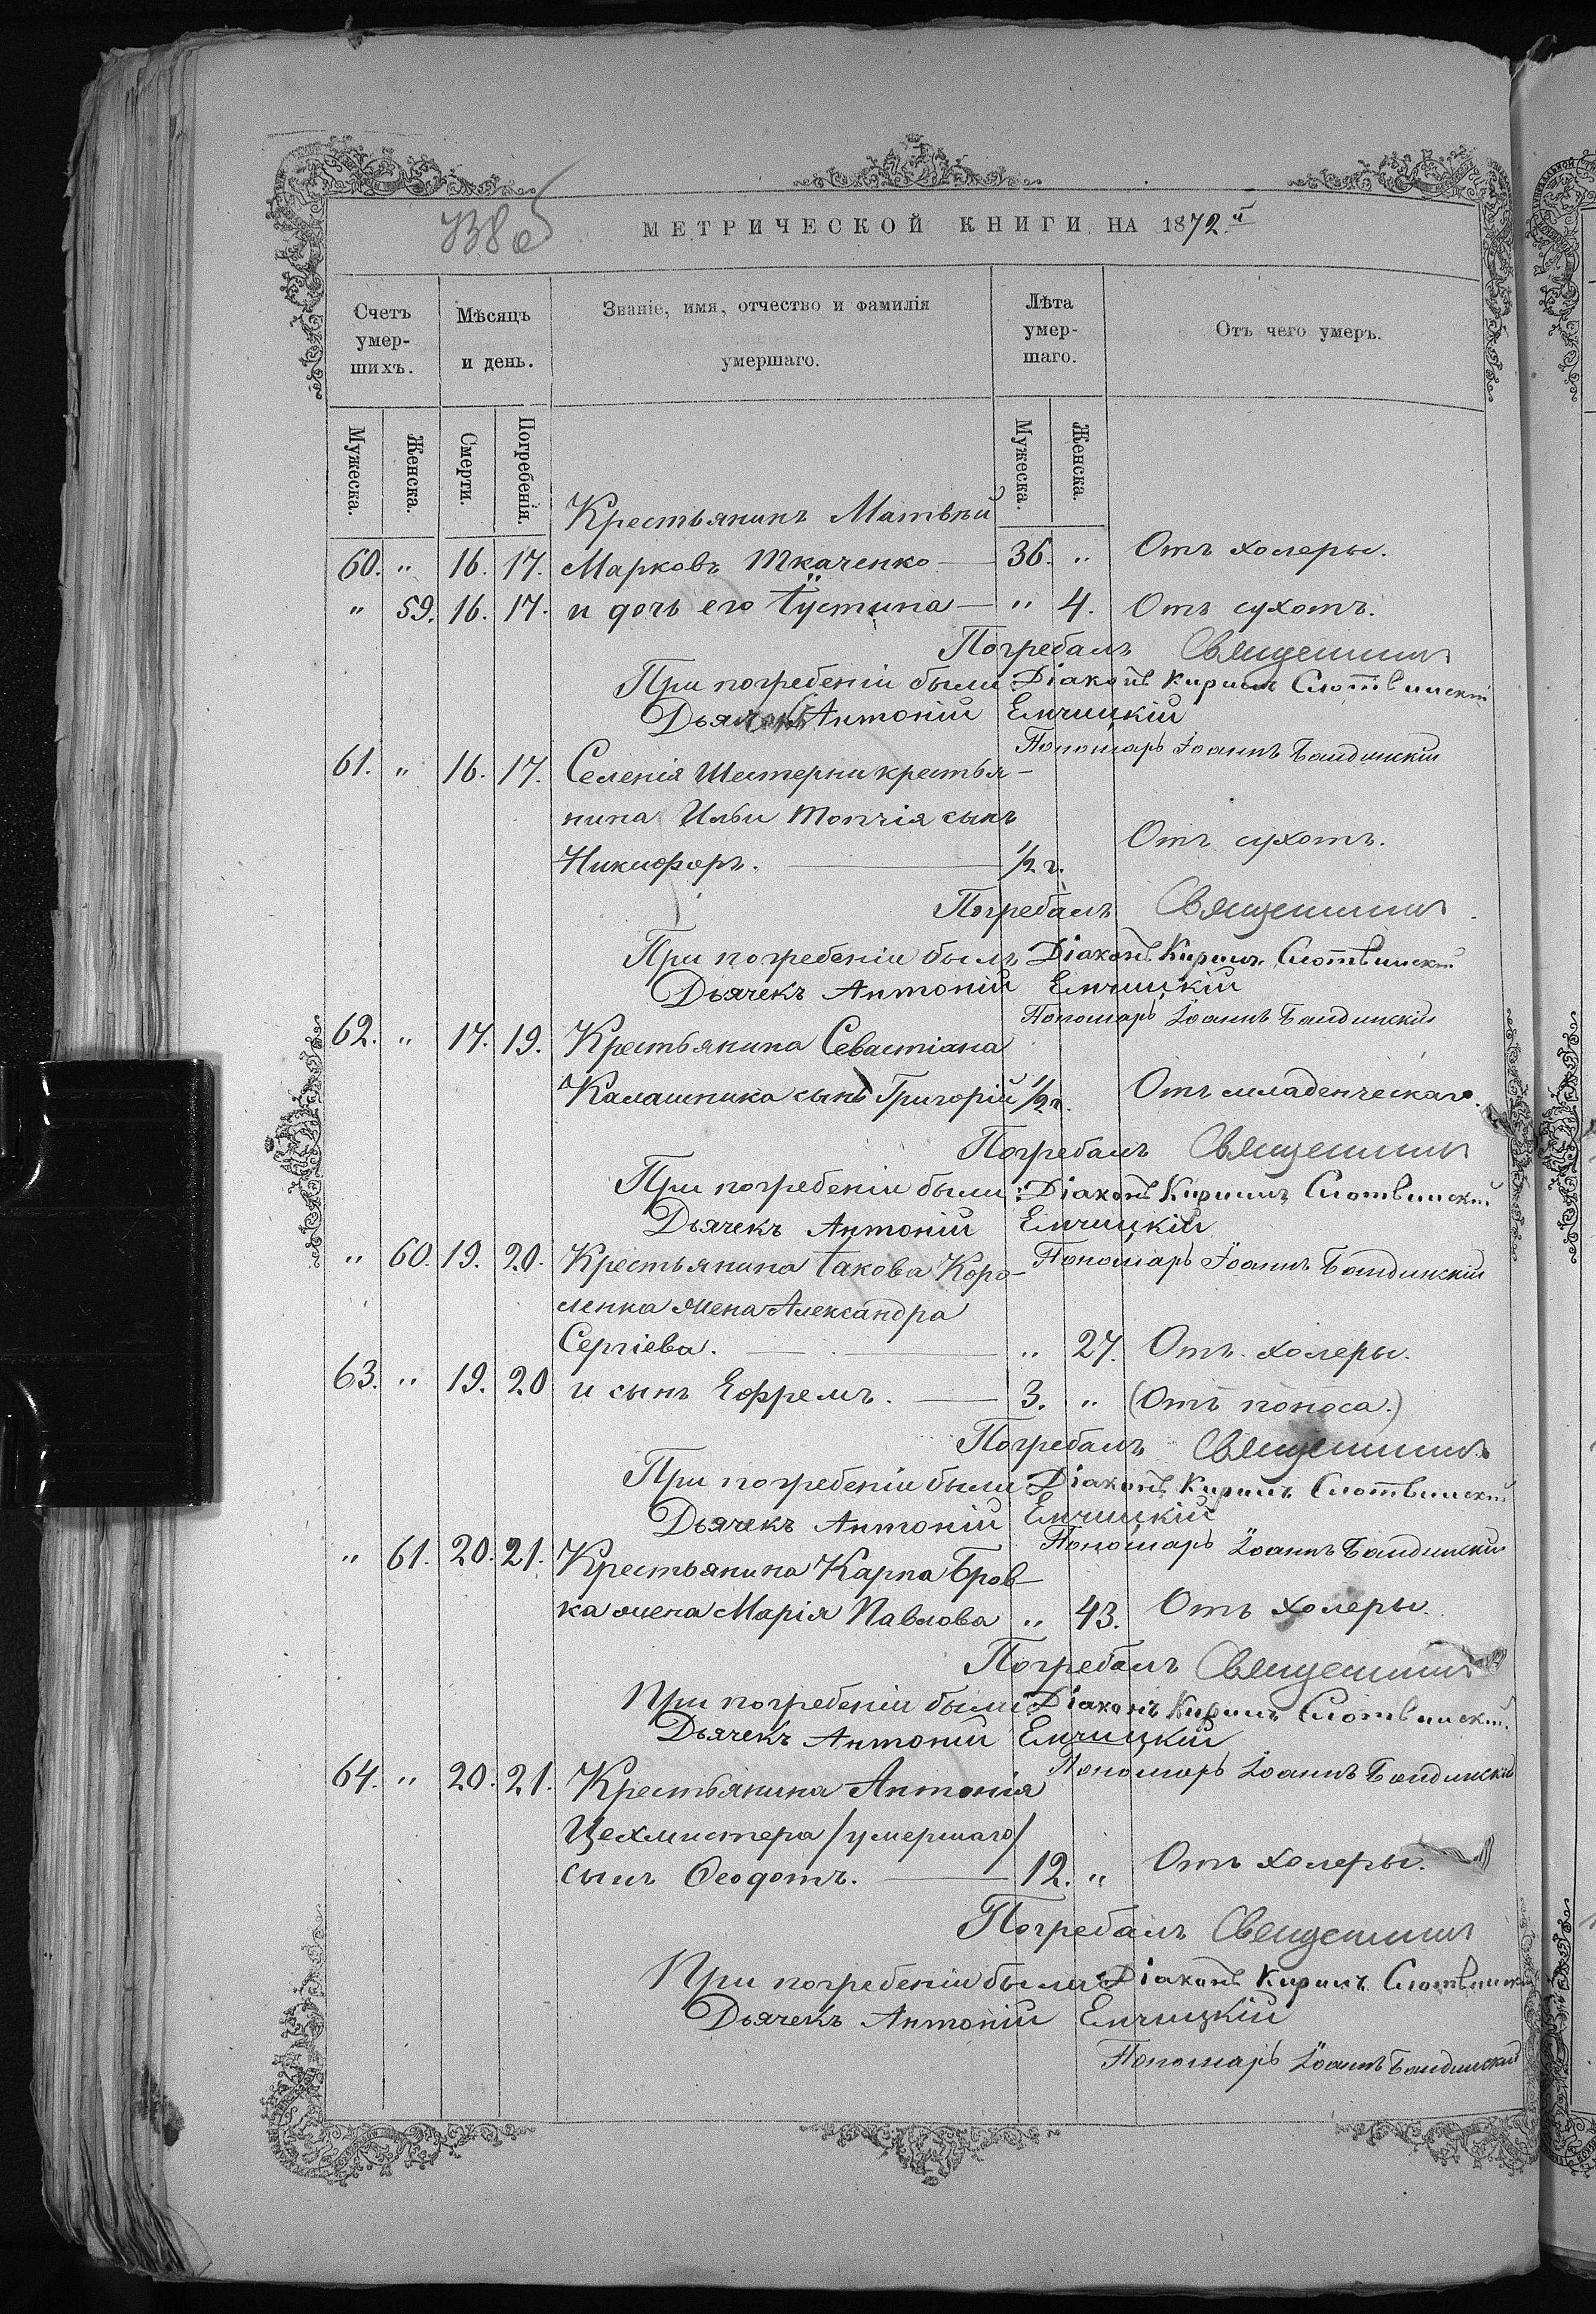 МЕТРИЧЕСКОЙ КНИГИ НА 1872й
Счетъ умер-шихъ. Мѣсяцъ и день. Званіе, имя, отчество и фамилія умершаго. Лѣта умер-шаго. Отъ чего умеръ.
Мужеска. Женска. Смерти. Погребенія. Мужеска. Женска.
Крестьянинъ Матвѣй
60. " 16. 17. Марковъ Ткаченко — 36. " Отъ холеры.
" 59. 16. 17. и дочь его Іустина — " 4. Отъ сухотъ.
Погребалъ Священникъ
При погребеніи были: Діаконъ Кирилъ Слотвинскій
Дьячекъ Антоній Емчицкій
Пономарь Іоаннъ Балдинскій
61. " 16. 17. Селенія Шестерни крестья-
нина Ильи Топчія сынъ
Никифоръ. — 1/2 г. Отъ сухотъ.
Погребалъ Священникъ
При погребеніи былъ Діаконъ Кирилъ Слотвинскій
Дьячекъ Антоній Емчицкій
Пономарь Іоаннъ Балдинскій
62. " 17. 19. Крестьянина Севастіана
Калашника сынъ Григорій 1/2 г. Отъ младенческаго.
Погребалъ Священникъ
При погребеніи были: Діаконъ Кирилъ Слотвинскій
Дьячекъ Антоній Емчицкій
Пономарь Іоаннъ Балдинскій
" 60. 19. 20. Крестьянина Іакова Коро-
ленка жена Александра
Сергіева. — " 27. Отъ холеры.
63. " 19. 20 и сынъ Ефремъ. — 3. " (Отъ поноса.)
Погребалъ Священникъ
При погребеніи были Діаконъ Кирилъ Слотвинскій
Дьячекъ Антоній Емчицкій
Пономарь Іоаннъ Балдинскій
" 61. 20. 21. Крестьянина Карпа Бров-
ка жена Марія Павлова " 43. Отъ холеры.
Погребалъ Священникъ
При погребеніи были: Діаконъ Кирилъ Слотвинскій
Дьячекъ Антоній Емчицкій
Пономарь Іоаннъ Балдинскій
64. " 20. 21. Крестьянина Антонія
Цехмистера /умершаго/
сынъ Ѳеодотъ. — 12. " Отъ холеры.
Погребалъ Священникъ
При погребеніи были: Діаконъ Кирилъ Слотвинскій
Дьячекъ Антоній Емчицкій
Пономарь Іоаннъ Балдинскій